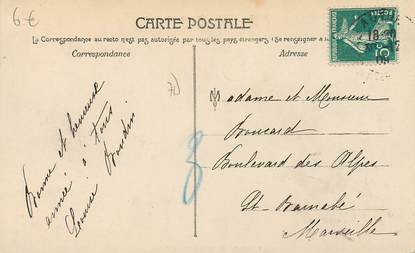 6 €
CARTE POSTALE
La Correspondance au recto n'est pas autorisée par tous les pays étrangers (Se renseigner à
Correspondance
Adresse
Bonne et heureuse
année à tous
Boudin
Madame et Monsieur
Boucard
Boulevard des Alpes
St Barnabé
Marseille